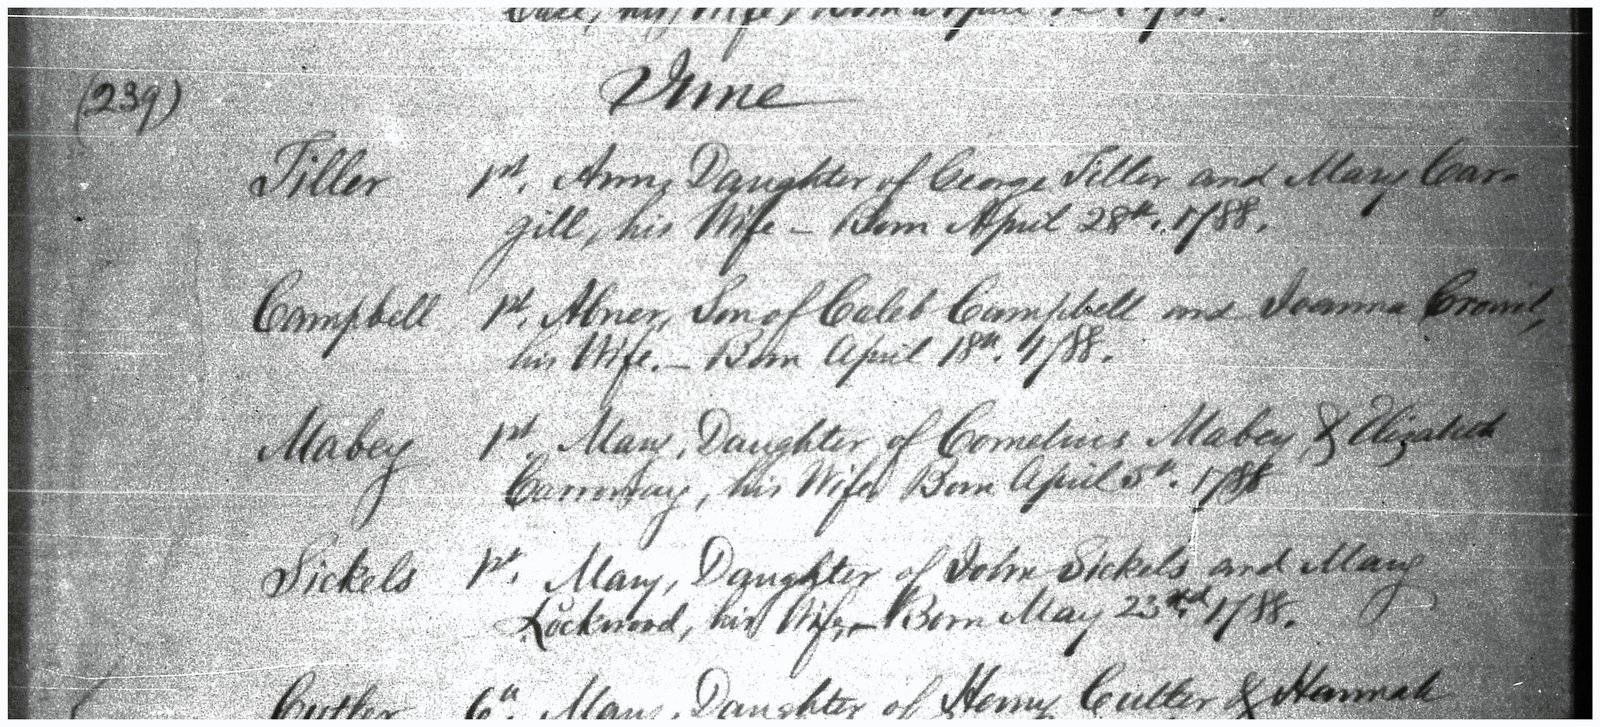 his Wife, Born April 1788.
(239)
June
Tiller 1st. Ann, Daughter of George Tiller and Mary Car=
gill, his Wife – Born April 28th. 1788.
Campbell 1st. Abner, Son of Caleb Campbell and Joanna
his Wife. – Born April 18th. 1788.
Mabey 1st. Mary, Daughter of Cornelius Mabey, & Elizabeth
his Wife Born April 5th. 1788
Sickels 1st. Mary, Daughter of John Sickels and Mary
Lockwood, his Wife, – Born May 23rd. 1788.
Cutler 6th. Mary, Daughter of Henry Cutler & Hannah